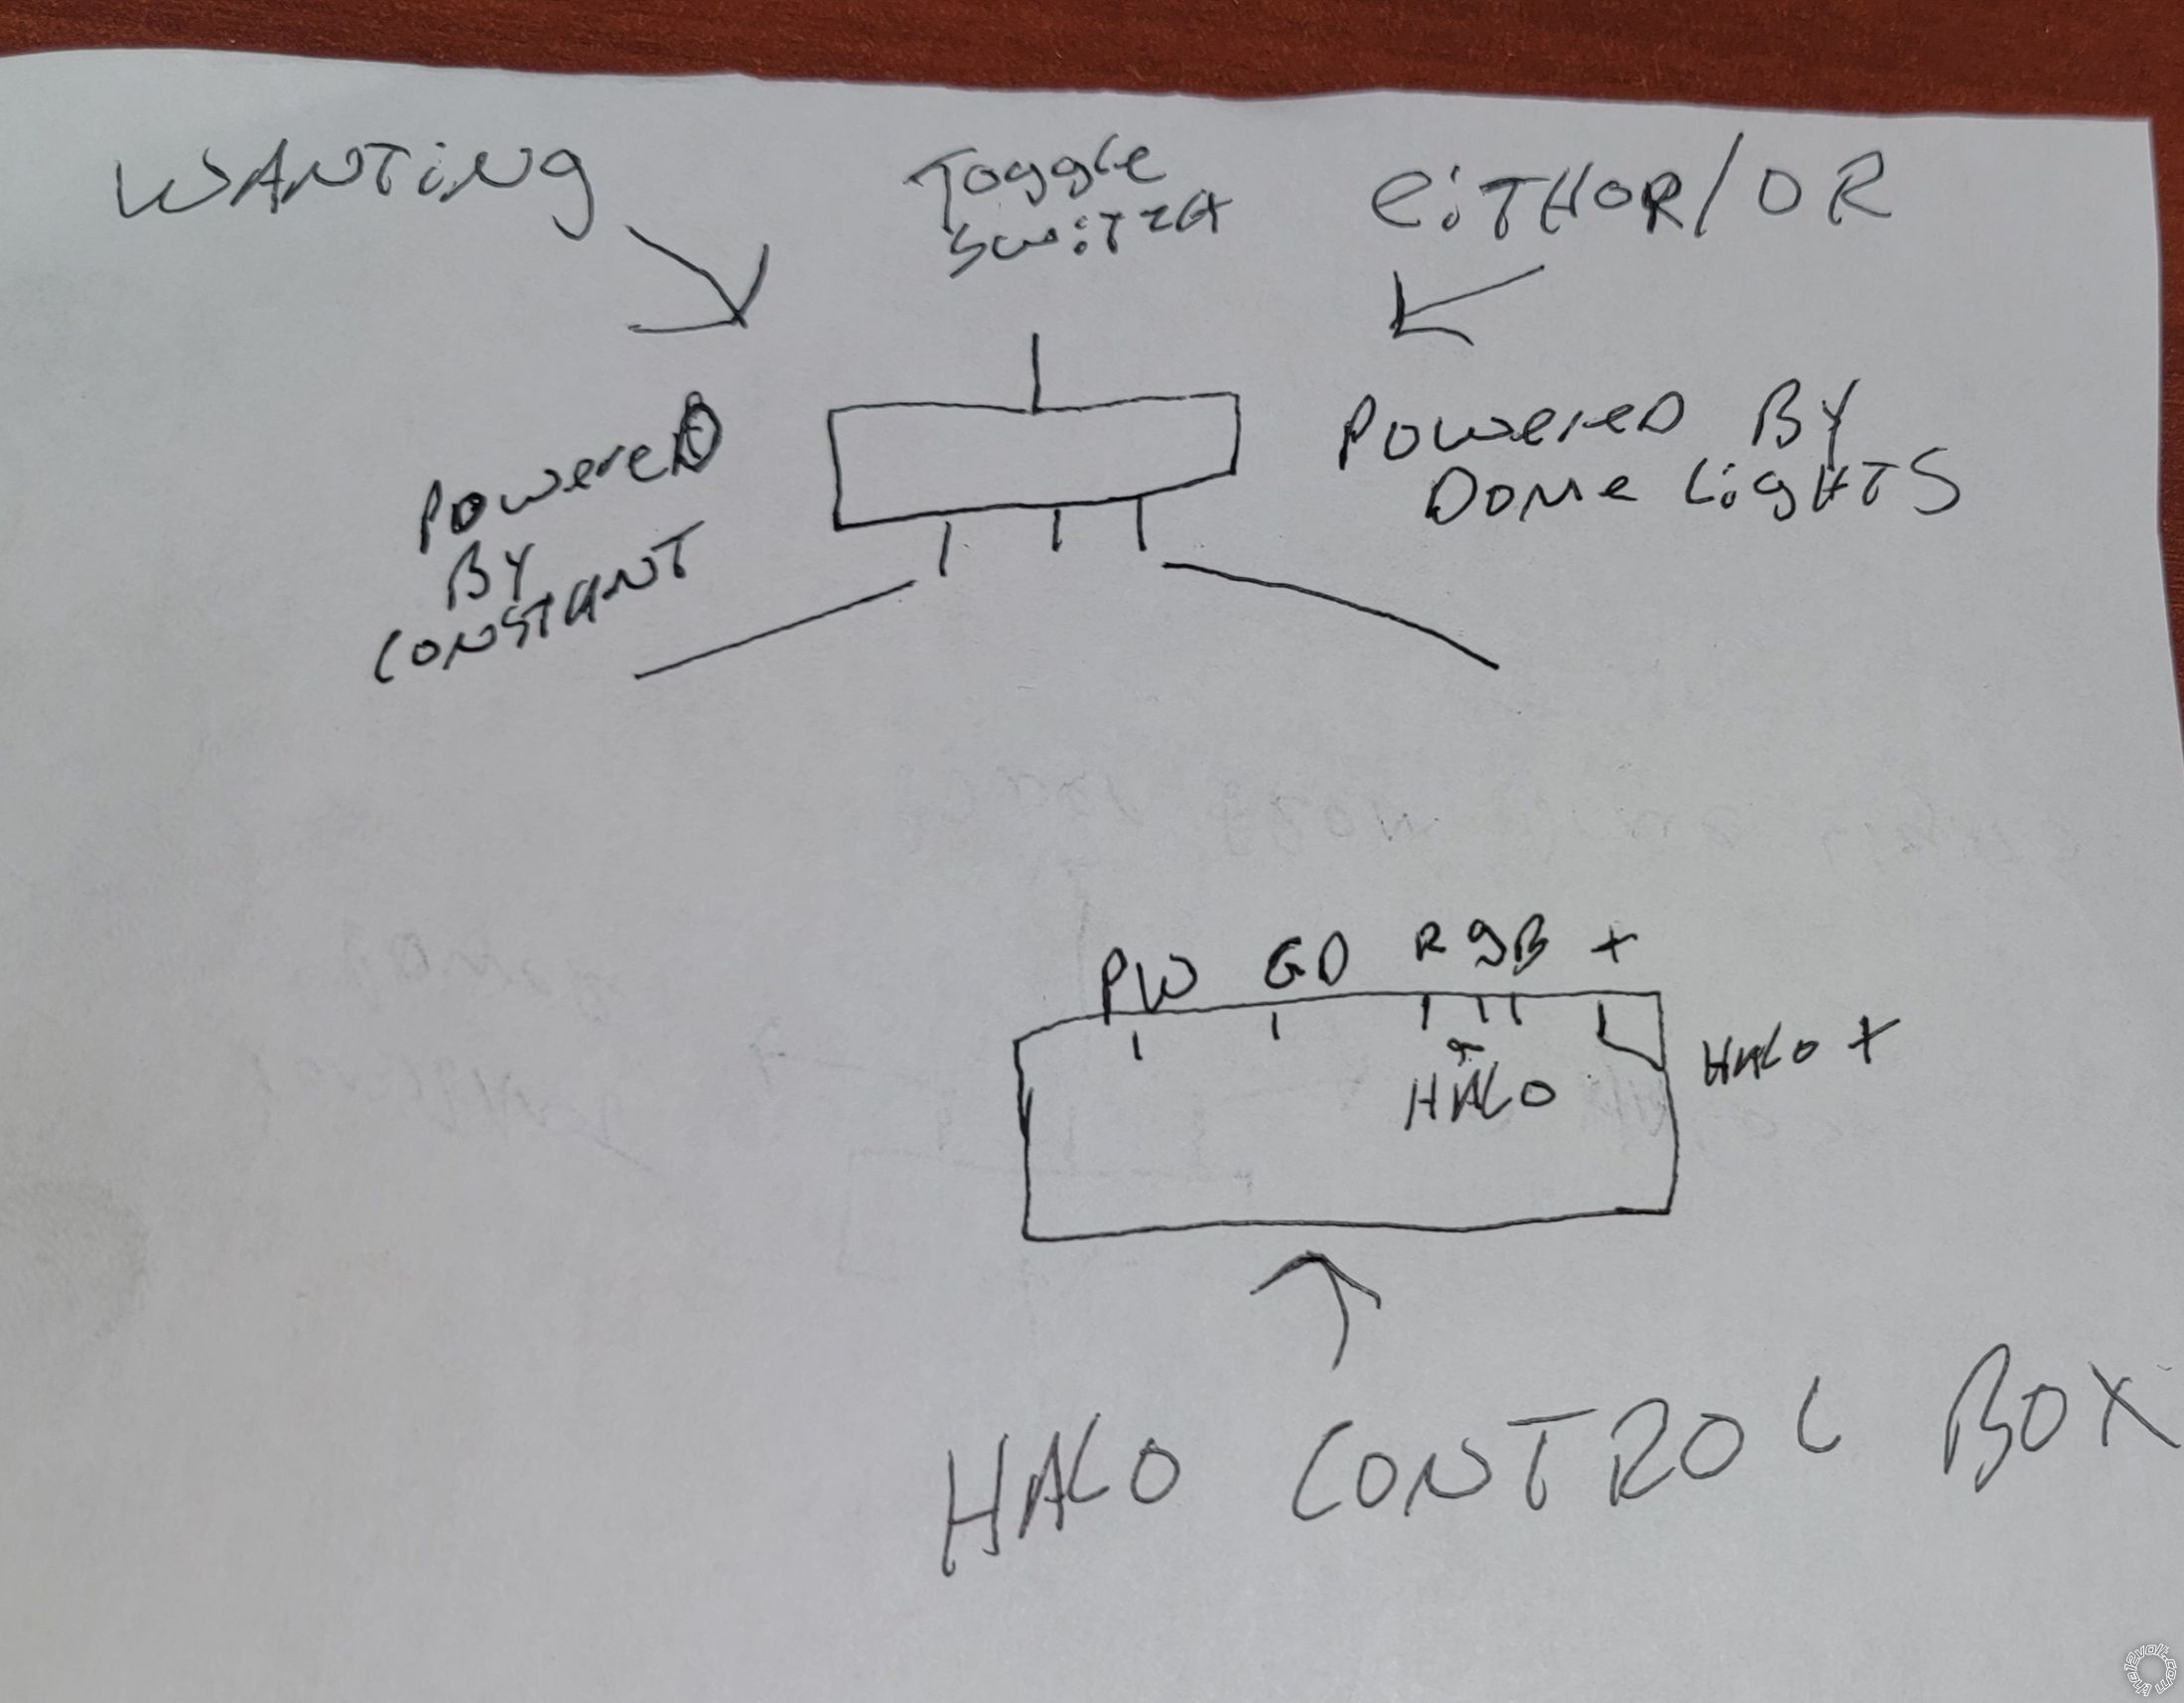 WANTiNg
Toggle
SwiTcH
eiTHOR/OR
Powered
By
CONSTANT
Powered By
Dome LigHTS
PW GD R g B +
HALO
HALO +
HALO CONTROL BOX
the12volt.com